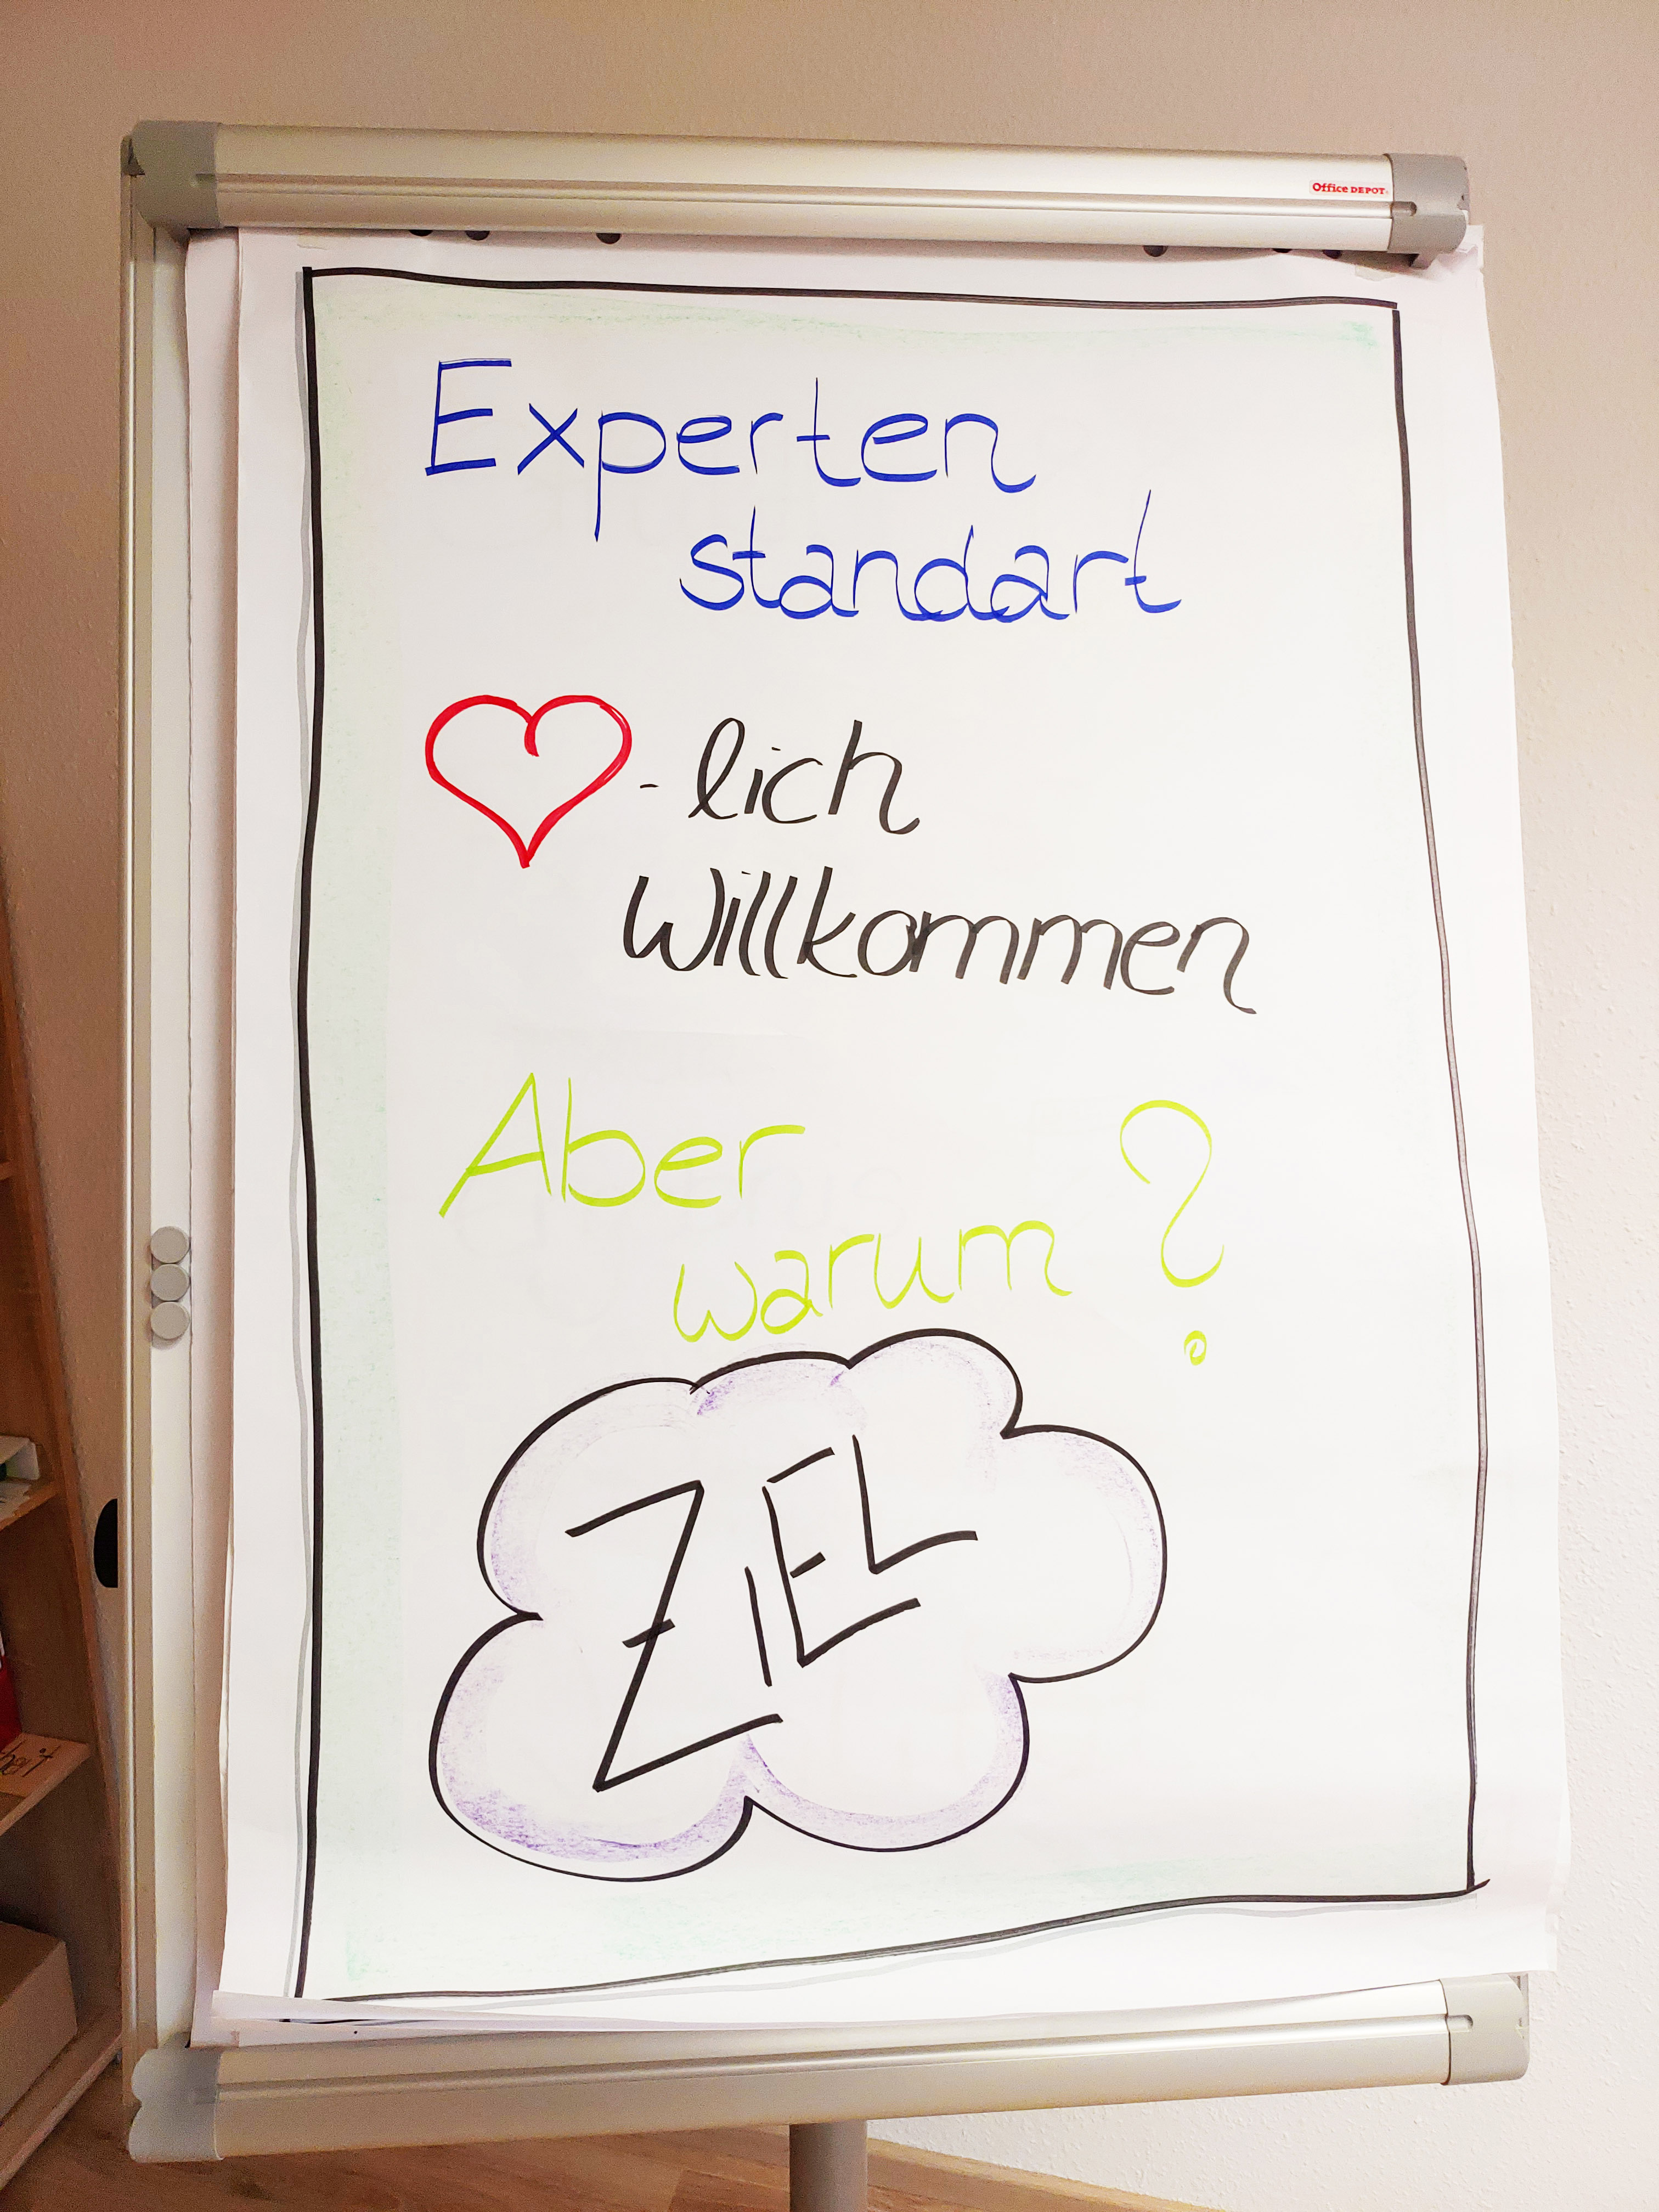 Office DEPOT
Experten
standart
- lich
Willkommen
Aber
warum ?
ZIEL
heit